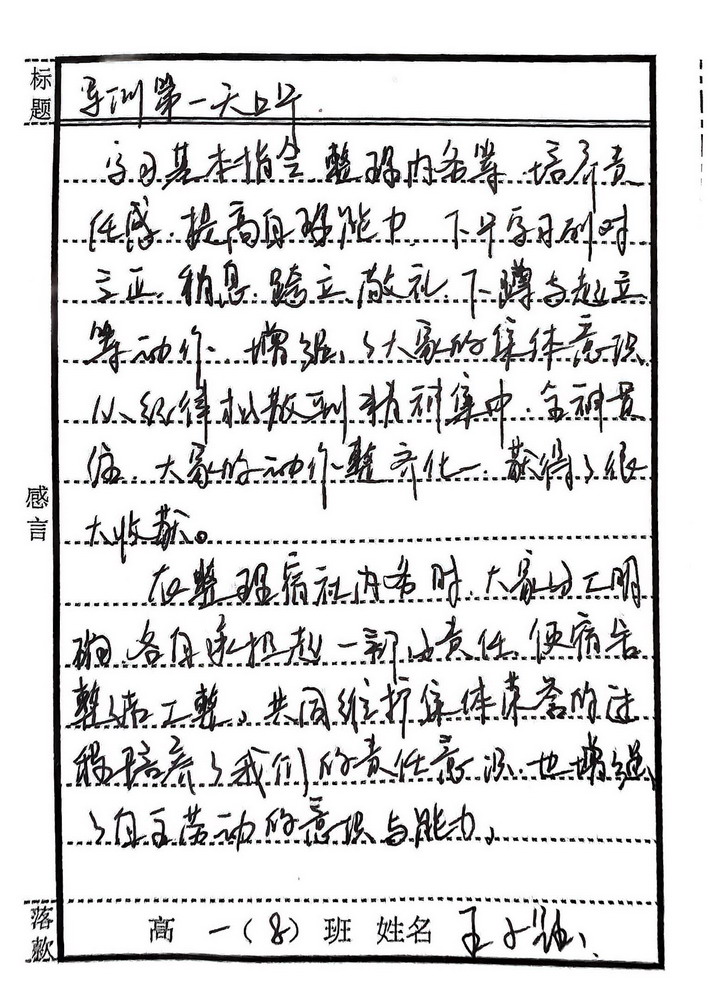 标题
军训第一天上午.
学习基本指令,整理内务等,培养责
任感,提高自理能力,下午学习列对
立正,稍息,跨立,敬礼,下蹲与起立
等动作,增强了大家的集体意识
从纪律松散到精神集中,全神贯
注,大家的动作整齐化一,获得了很
大收获。
感言
在整理宿社内务时,大家分工明
确,各自承担起一部分责任,使宿舍
整洁工整,共同维护集体荣誉的过
程培养了我们的责任意识,也增强
了自主劳动的意识与能力,
落款
高一(8)班 姓名 王子